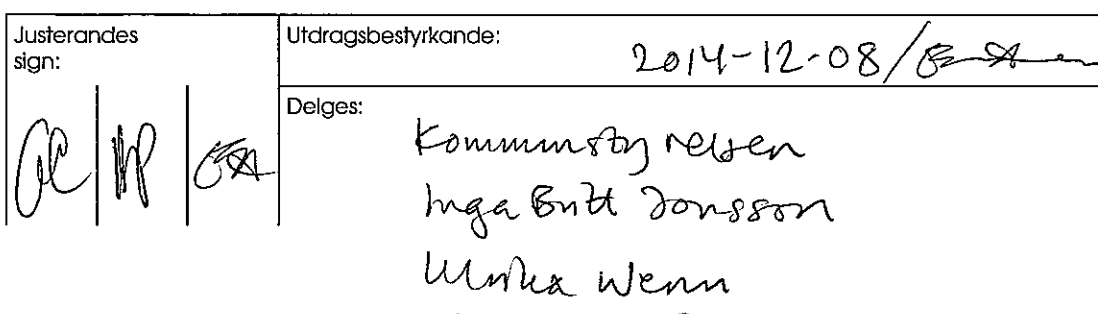 Justerandes
sign:
Utdragsbestyrkande:
2014-12-08/
Delges:
Kommunstyrelsen
Inga Britt Jonsson
Ulrika Wenn